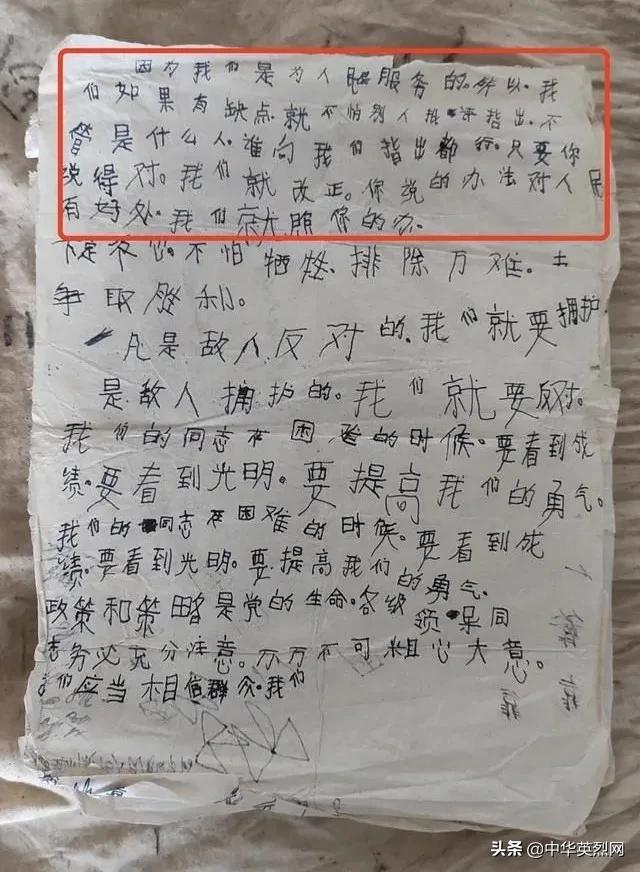 因为我们是为人民服务的.所以.我
们如果有缺点.就不怕别人批评指出.不
管是什么人.谁向我们指出都行.只要你
说得对.我们就改正.你说的办法对人民
有好处.我们就照你的办.
下定决心.不怕牺牲.排除万难.去
争取胜利。
凡是敌人反对的.我们就要拥护
是敌人拥护的.我们就要反对.
我们的同志在困难的时候.要看到成
绩.要看到光明.要提高我们的勇气。
我们的同志在困难的时候.要看到成
绩.要看到光明.要提高我们的勇气.
政策和策略是党的生命.各级领导同
志务必充分注意.万万不可粗心大意。
我们应当相信群众.我们
头条 @中华英烈网